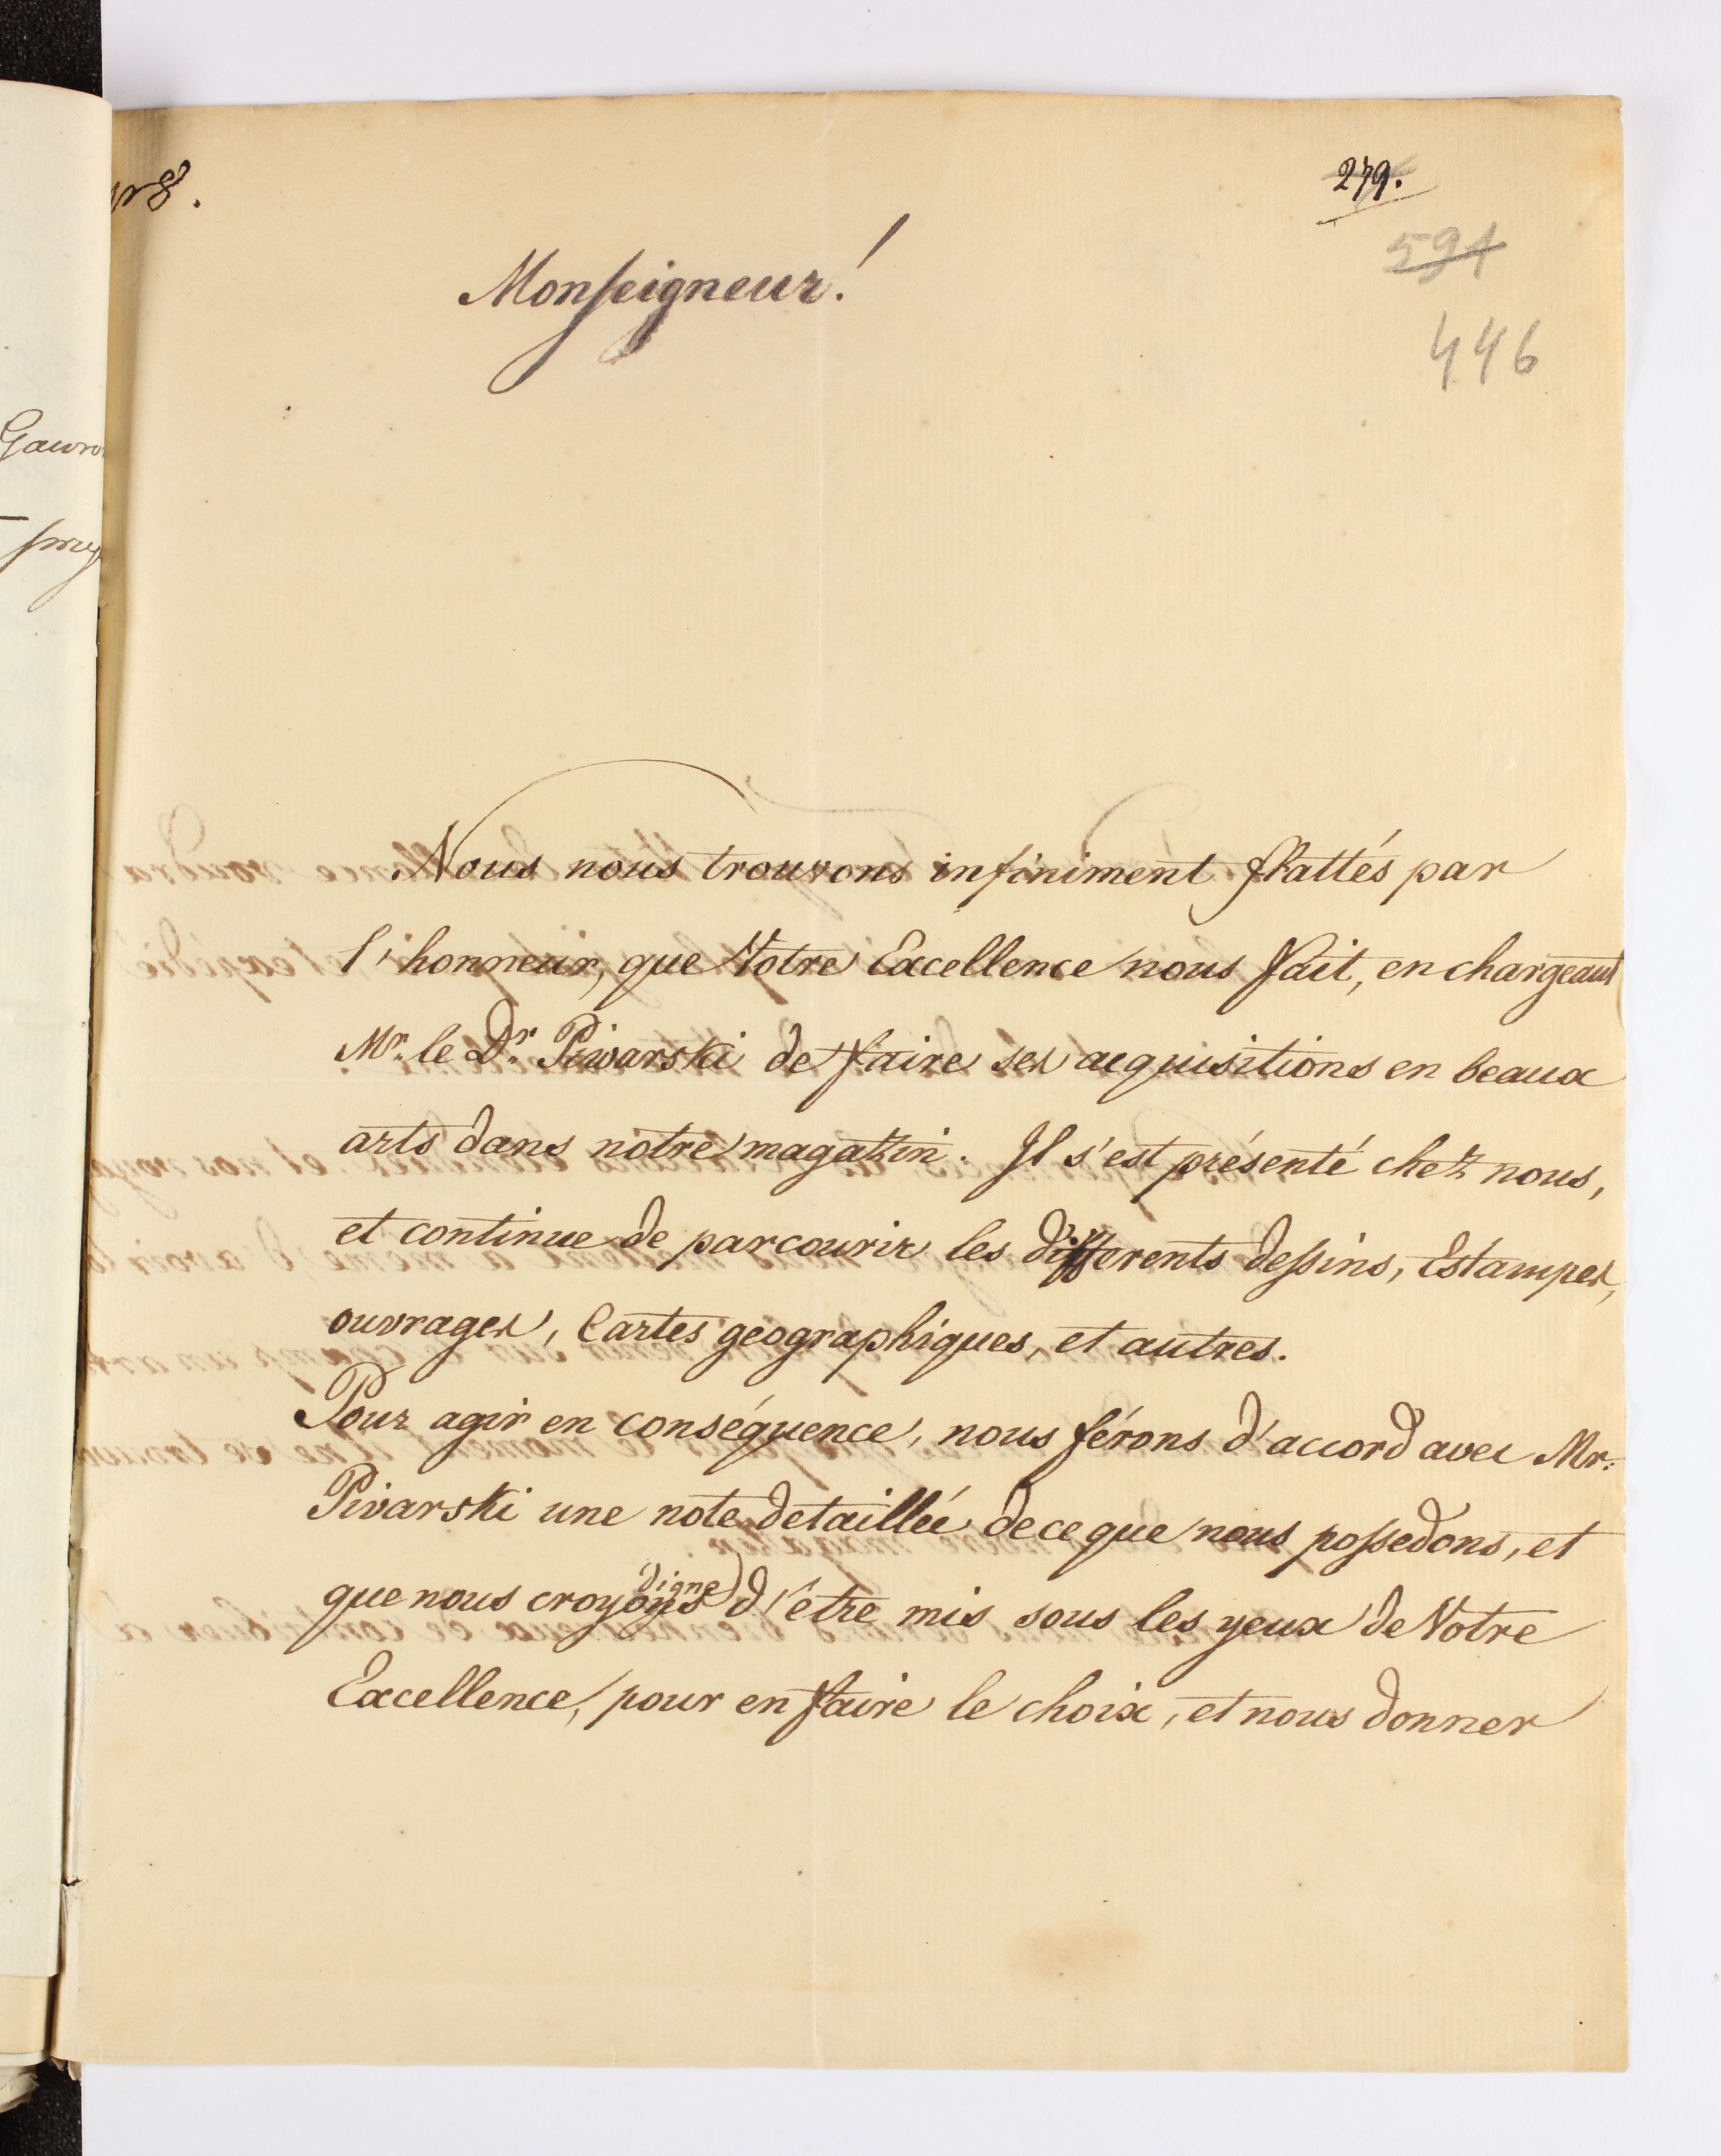 279.
591
446
Monseigneur!
Nous nous trouvons infiniment flattés par
l'honneur, que Votre Excellence nous fait, en chargeant
Mr. le Dr. Piwarski de faire ses acquisitions en beaux
arts dans notre magazin. Il s'est présenté chez nous,
et continue de parcourir les differents dessins, Estampes,
ouvrages, Cartes geographiques, et autres.
Pour agir en conséquence, nous férons d'accord avec Mr.
Pivarski une note detaillée de ce que nous possedons, et
que nous croyons digne d'être mis sous les yeux de Votre
Excellence, pour en faire le choix, et nous donner